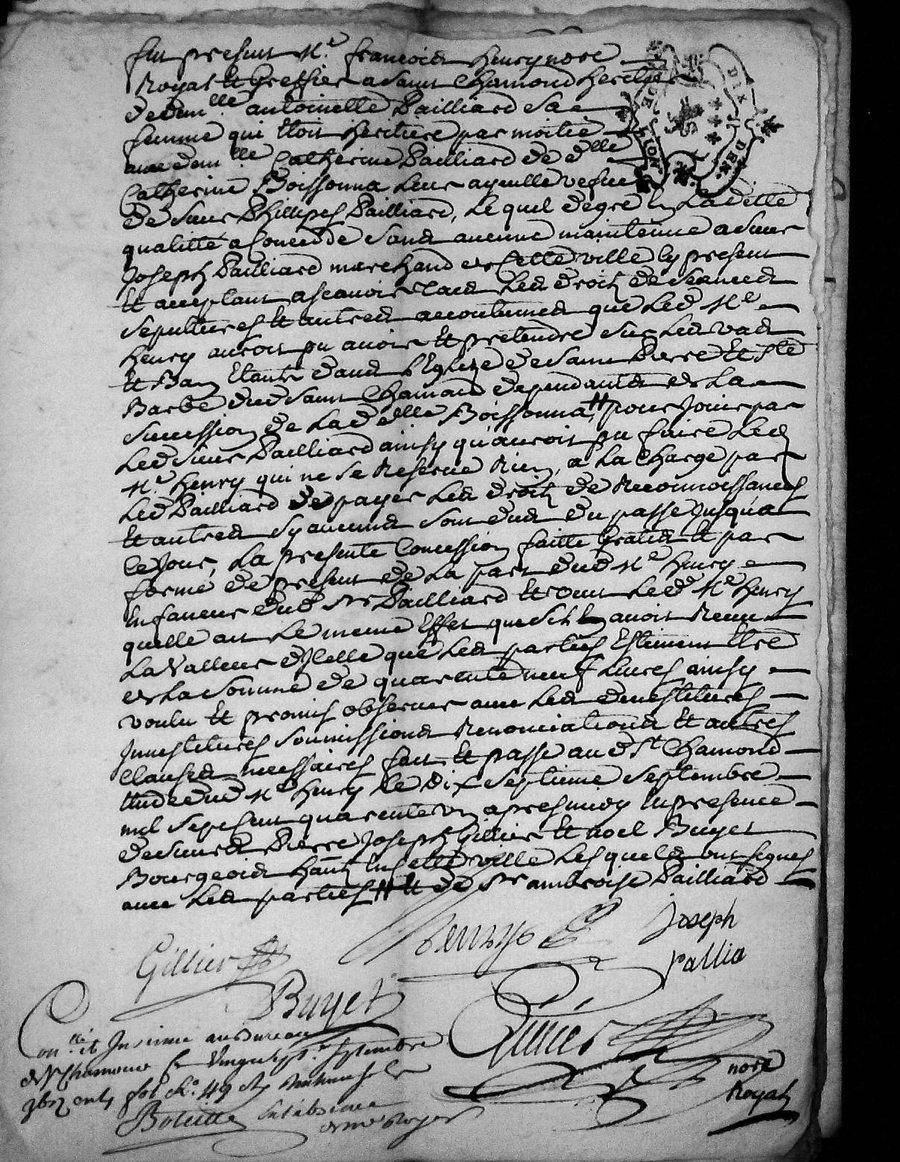 fut present Me. françois henry nore
Royal et greffier a saint Chamond heritier
de dem.lle antoinette Pailliard sa
femme que etoit heritiere par moitié
avec dem.lle Catherine Pailliard de d.lle
Catherine Boissonna leur ayeulle vefve
de sieur Phillipes Pailliard, Lequel de gré en Laditte
qualitté a concedde sans aucune maintenue a sieur
Joseph Pailliard marchand en Cette ville Cy present
et acceptant ascavoir Les droits de seances
sepultures et autres accoutumes que Led. Me.
henry auroit pu avoir et pretendre sur Les vas
et Ban etants dans l'Eglize de saint Pierre et Ste
Barbe dud saint Chamond dependants de La
succession de Lad. d.lle Boissonna, // pour Jouir par
Led sieur Pailliard ainsy qu'auroit pu faire Led
Me. henry qui ne se Reserve Rien, a La Charge par
Led Pailliard de payer Les droits de Reconnoissances
et autres sy aucuns sont dus du passé Jusqu'a
Ce Jour, La presente Concession faitte Gratis et par
forme de present de La part dud Me. henry
En faveur dud Sr. Pailliard et veut Led. Me. henry
quelle ait Le meme Effet que s'il avoit Receu
La Valleur d'Icelle que Les parties Estiment Etre
de La somme de quarente neuf Livres ainsy
voulu et promis observer avec Les devestitures
Investitures soumissions Renonciations et autres
Clauses necessaires fait et passé aud St Chamond
Etude dud Me. henry Le dix septieme Septembre
mil sept Cent quarente un apres midy En presence
de sieurs Pierre Joseph Gillier et noel Buyet
Bourgeois hants En Cette ville Lesquels ont signes
avec Les parties // et de Sr ambroise Pailliard
Gillier
henry
Joseph
pallia
Buyet
nore
Royal
Con.llé et Insinué au Bureau
de St Chamond Le Vingt sept.e septembre
fol R.o 49